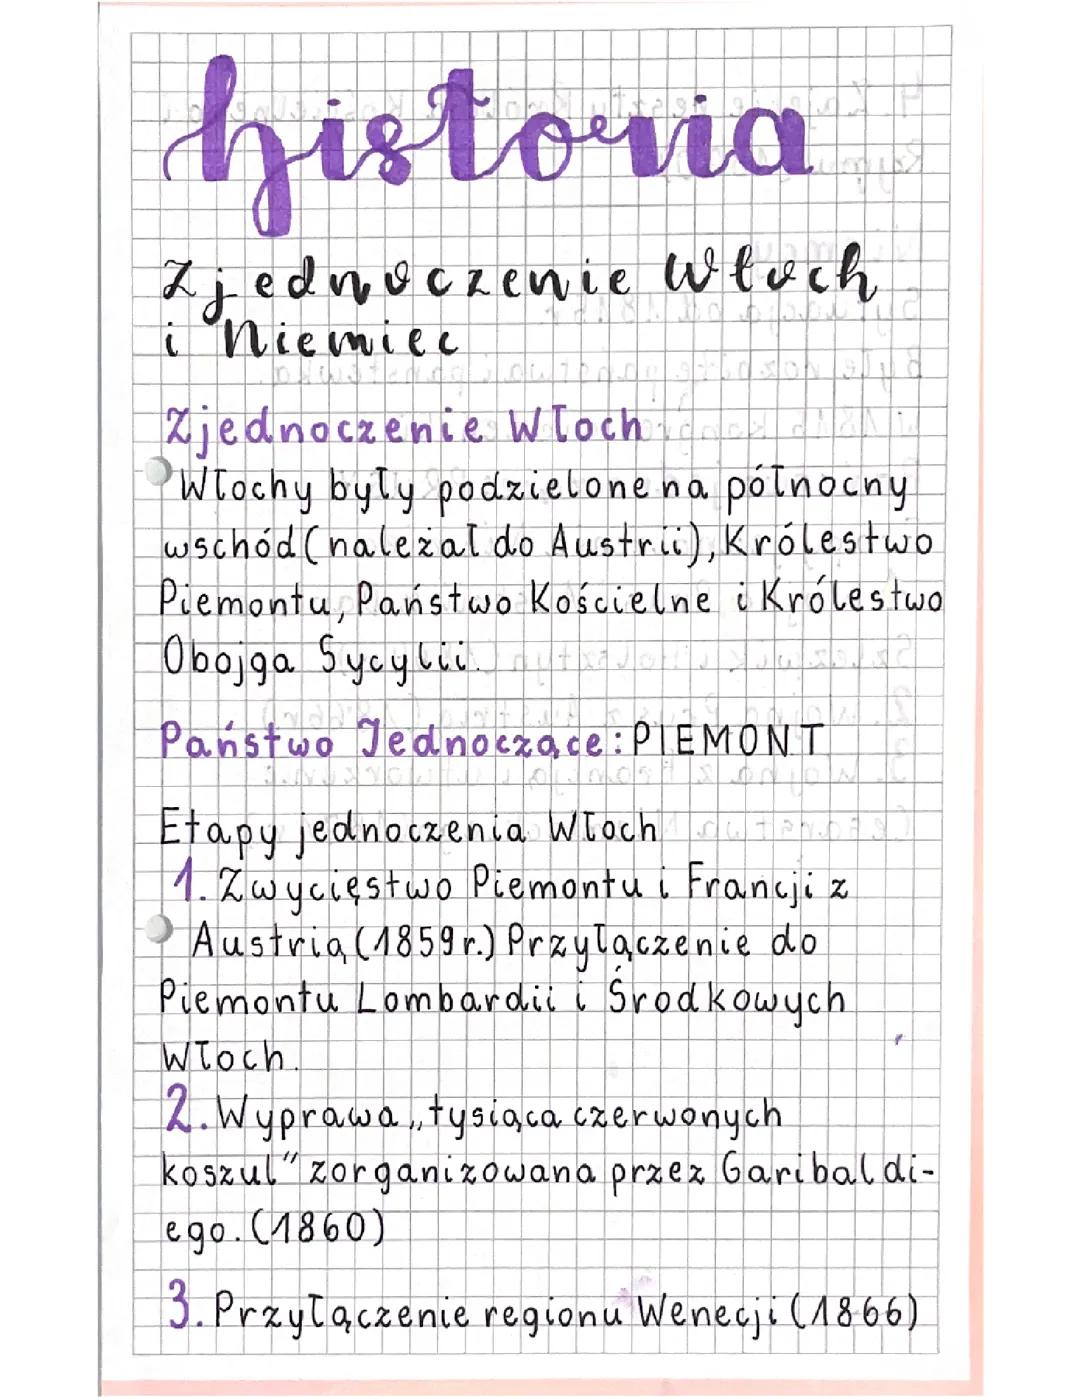 historia
Zjednoczenie Włoch
i Niemiec
Zjednoczenie Włoch
Włochy były podzielone na północny
wschód (należał do Austrii), Królestwo
Piemontu, Państwo Kościelne i Królestwo
Obojga Sycylii.
Państwo Jednoczące: PIEMONT
Etapy jednoczenia Włoch
1. Zwycięstwo Piemontu i Francji z
Austrią (1859r.) Przyłączenie do
Piemontu Lombardii i Środkowych
Włoch.
2. Wyprawa „tysiąca czerwonych
koszul" zorganizowana przez Garibaldi-
ego. (1860)
3. Przyłączenie regionu Wenecji (1866)